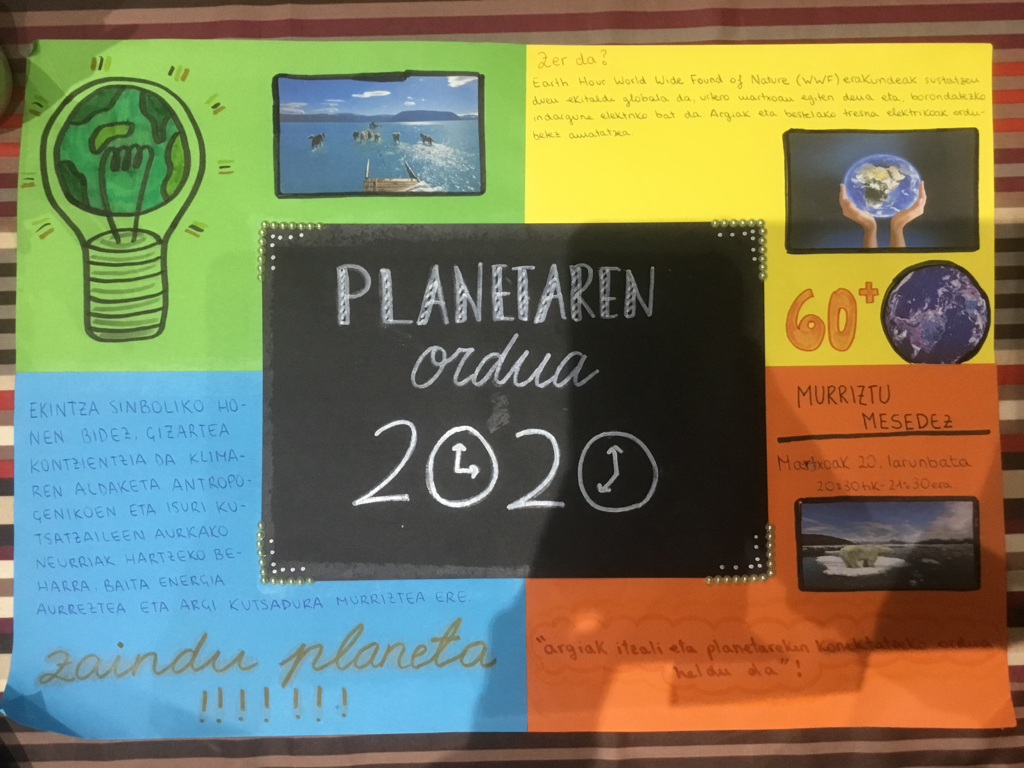 Zer da?
Earth Hour World Wide Found of Nature (WWF) erakundeak sustatzen
duen ekitaldi globala da, urtero martxoan egiten dena eta, borondatezko
indargune elektriko bat da Argiak eta bestelako tresna elektrikoak ordu-
betez amatatzea.
60+
PLANETAREN
ordua
2020
EKINTZA SINBOLIKO HO-
NEN BIDEZ, GIZARTEA
KONTZIENTZIA DA KLIMA-
REN ALDAKETA ANTROPO-
GENIKOEN ETA ISURI KU-
TSATZAILEEN AURKAKO
NEURRIAK HARTZEKO BE-
HARRA, BAITA ENERGIA
AURREZTEA ETA ARGI KUTSADURA MURRIZTEA ERE.
zaindu planeta
!!! !!! !
MURRIZTU
MESEDEZ
Martxoak 20, larunbata
20:30tik-21:30era
"argiak itzali eta planetarekin konektatzeko ordua
heldu da"!